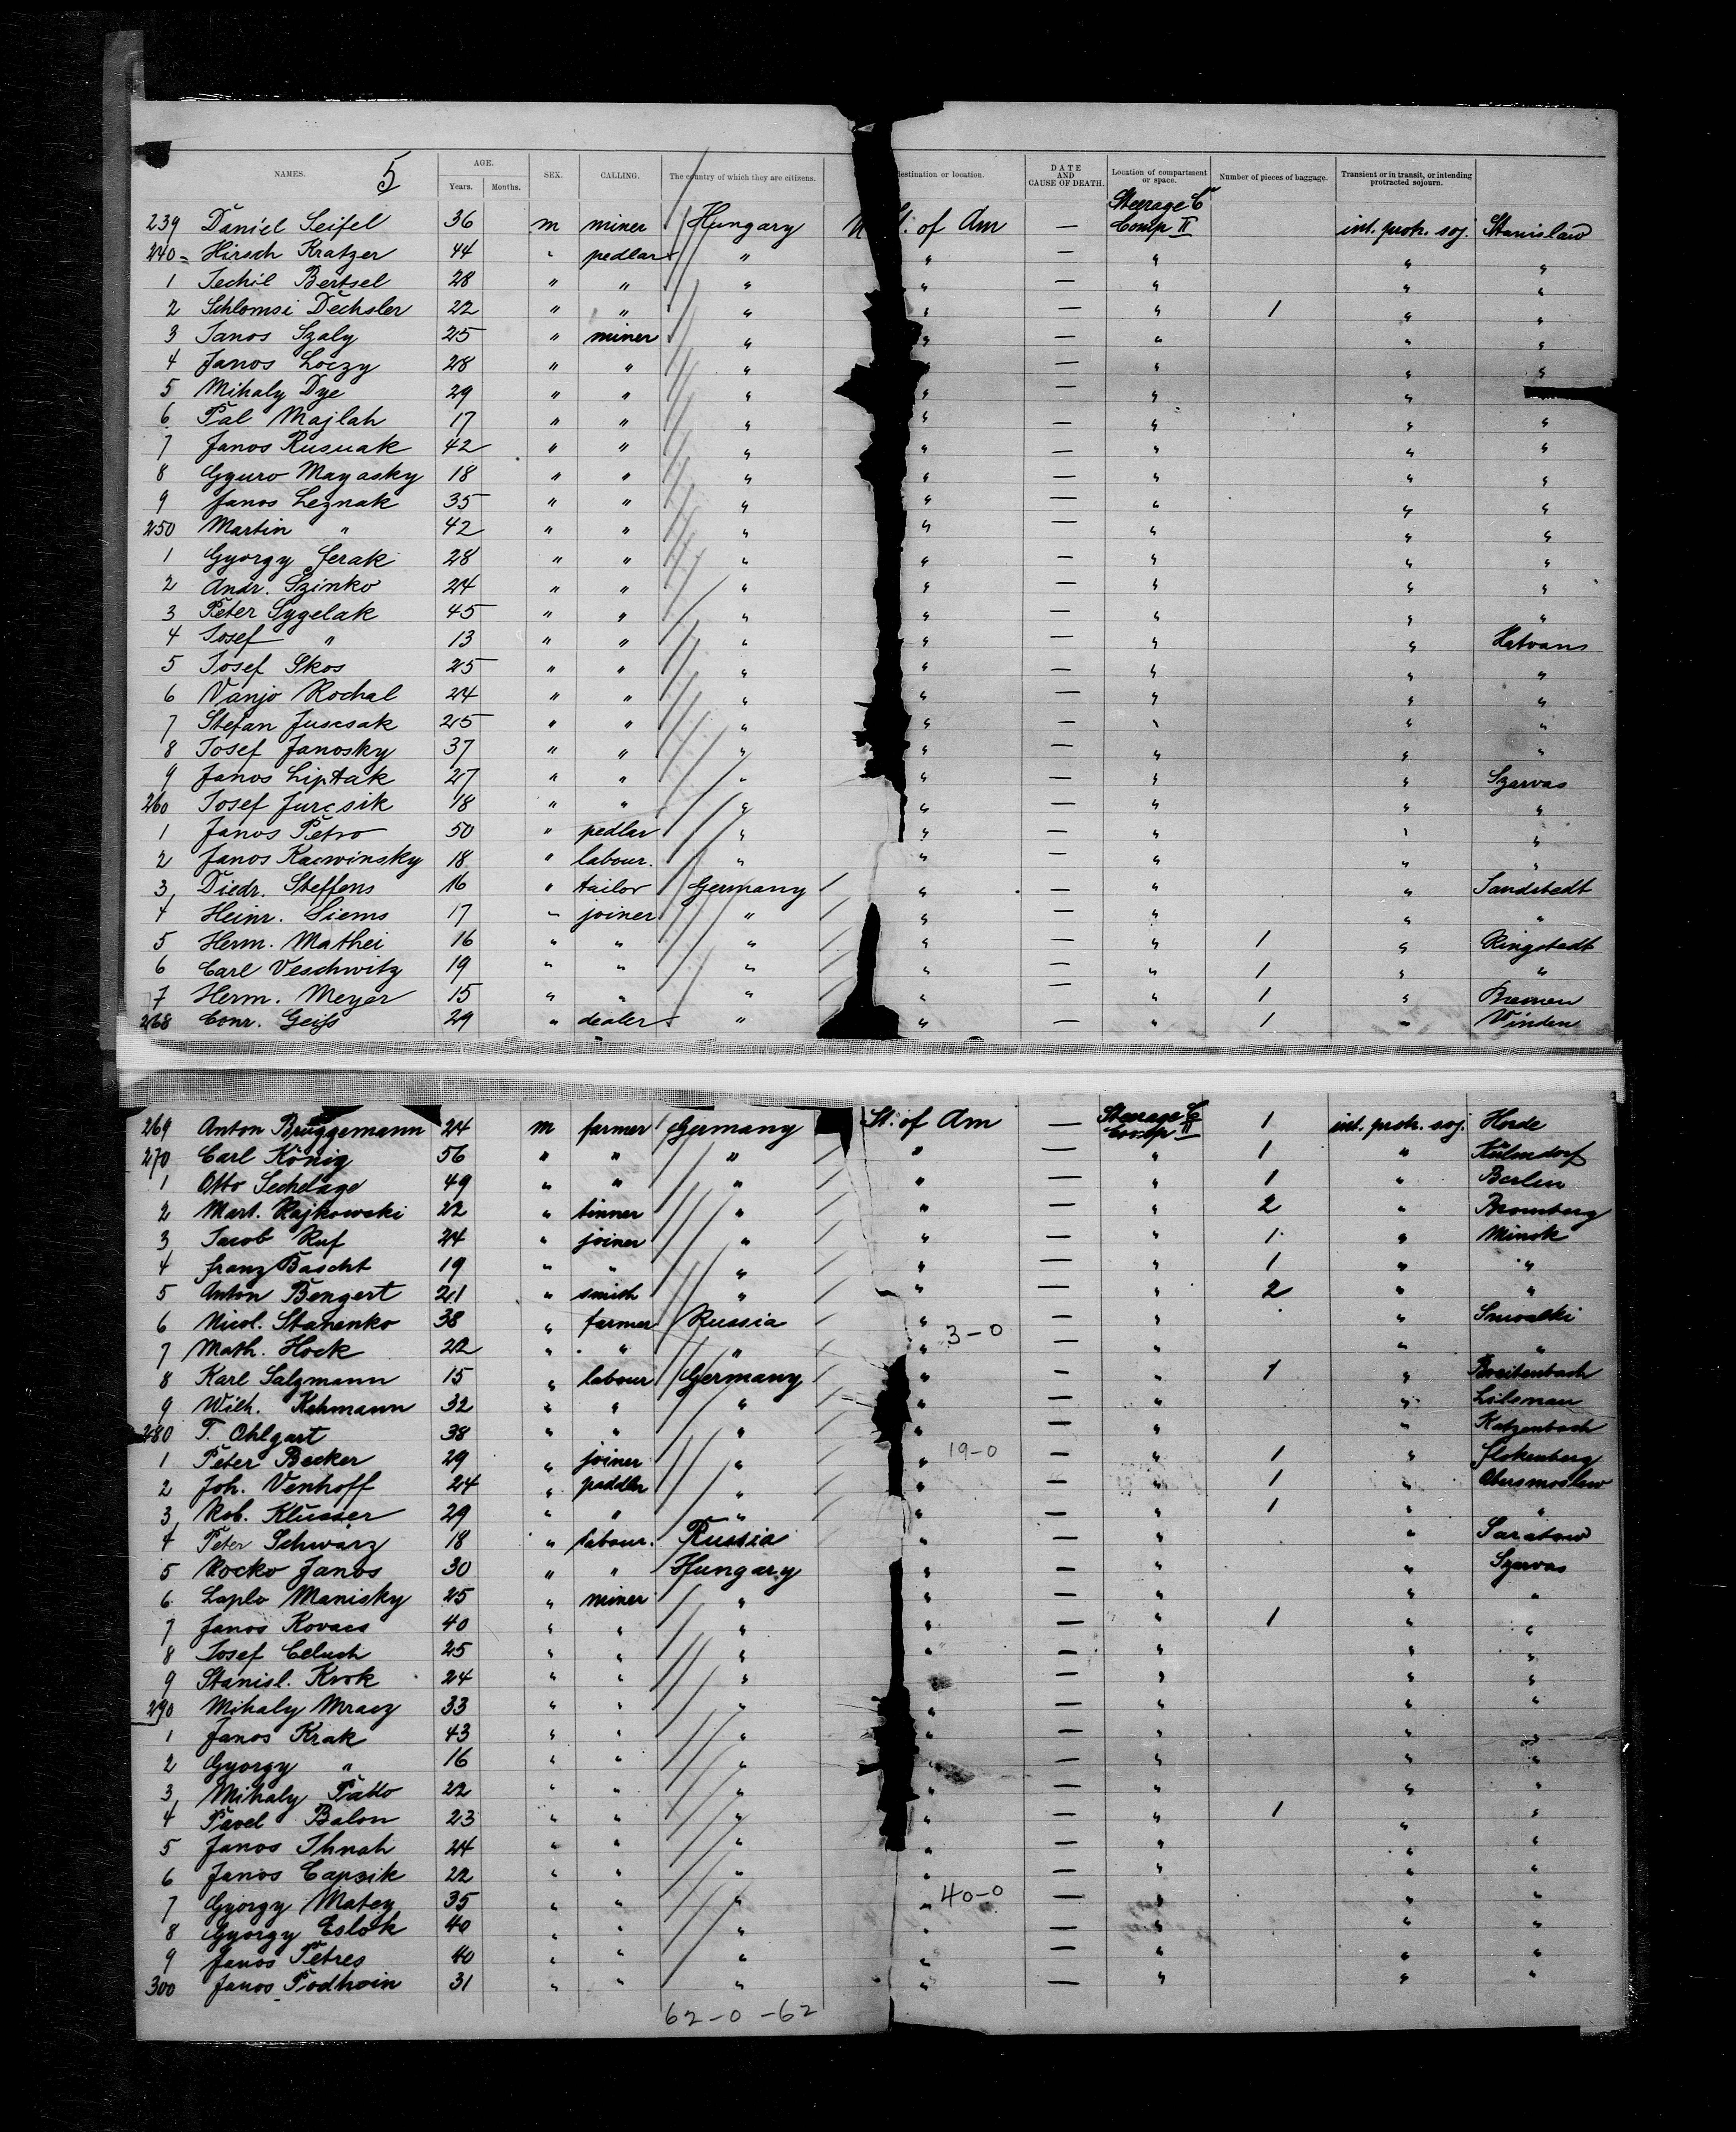 NAMES. 5 AGE. Years. Months. SEX. CALLING. The country of which they are citizens. destination or location. DATE AND CAUSE OF DEATH. Location of compartment or space. Number of pieces of baggage. Transient or in transit, or intending protracted sojourn.
239 Daniel Seifel 36 m miner Hungary St. of Am — Steerage C Comp II int. protr. soj. Stanislaw
240 Hirsch Kratzer 44 " pedlar " " — " " "
1 Jechil Bertsel 28 " " " " — " " "
2 Schlomsi Dechsler 22 " " " " — " 1 " "
3 Janos Szaly 25 " miner " " — " " "
4 Janos Loczy 28 " " " " — " " "
5 Mihaly Dye 29 " " " " — " "
6 Pal Majlah 17 " " " " — " " "
7 Janos Rusuak 42 " " " " — " " "
8 Gyuro Mayasky 18 " " " " — " " "
9 Janos Leznak 35 " " " " — " " "
250 Martin " 42 " " " " — " " "
1 Gyorgy Jerak 28 " " " " — " " "
2 Andr. Szinko 24 " " " " — " " "
3 Peter Sygelak 45 " " " " — " " "
4 Josef " 13 " " " " — " " Hatvans
5 Josef Skos 25 " " " " — " " "
6 Vanjo Rochal 24 " " " " — " " "
7 Stefan Juscsak 25 " " " " — " " "
8 Josef Janosky 37 " " " " — " " "
9 Janos Liptak 27 " " " " — " " Szarvas
260 Josef Jurcsik 18 " " " " — " " "
1 Janos Petro 50 " pedlar " " — " " "
2 Janos Kacwinsky 18 " labour. " " — " " "
3 Diedr. Steffens 16 " tailor Germany " — " " Sandstedt
4 Heinr. Siems 17 " joiner " " — " " "
5 Herm. Mathei 16 " " " " — " 1 " Ringstedt
6 Carl Veschwitz 19 " " " " — " 1 " "
7 Herm. Meyer 15 " " " " — " 1 " Bremen
268 Conr. Geiß 29 " dealer " " — " 1 " Winden
269 Anton Brüggemann 24 m farmer Germany St. of Am — Steerage C Comp II 1 int. protr. soj. Horde
270 Carl König 56 " " " " — " 1 " Külmdorf
1 Otto Sechelage 49 " " " " — " 1 " Berlin
2 Mart. Rajkowski 22 " tinner " " — " 2 " Bromberg
3 Jacob Ruf 24 " joiner " " — " 1 " Minsk
4 Franz Bascht 19 " " " " — " 1 " "
5 Anton Bengert 21 " smith " " — " 2 " "
6 Nicol. Stanenko 38 " farmer Russia " — " " Suwalki
7 Math. Hock 22 " " " " 3-0 — " " "
8 Karl Salzmann 15 " labour Germany " — " 1 " Breitenbach
9 Wilh. Kehmann 32 " " " " — " "
280 T. Ohlgart 38 " " " " — " " Katzenbach
1 Peter Becker 29 " joiner " " 19-0 — " 1 "
2 Joh. Venhoff 24 " peddler " " — " 1 "
3 Rob. Klusser 29 " " " " — " 1 " "
4 Peter Schwarz 18 " labour. Russia " — " " Saratow
5 Rocko Janos 30 " " Hungary " — " " Szarvas
6 Laplo Manisky 25 " miner " " — " " "
7 Janos Kovacs 40 " " " " — " 1 " "
8 Josef Celuch 25 " " " " — " " "
9 Stanisl. Krok 24 " " " " — " " "
290 Mihaly Mracz 33 " " " " — " " "
1 Janos Krak 43 " " " " — " " "
2 Gyorgy " 16 " " " " — " " "
3 Mihaly Patto 22 " " " " — " " "
4 Pavel Balon 23 " " " " — " 1 " "
5 Janos Ihnah 24 " " " " — " " "
6 Janos Capsik 22 " " " " — " " "
7 Gyorgy Matey 35 " " " " 40-0 — " " "
8 Gyorgy Eslok 40 " " " " — " " "
9 Janos Petres 40 " " " " — " " "
300 Janos Podhoin 31 " " " " — " " "
62-0-62